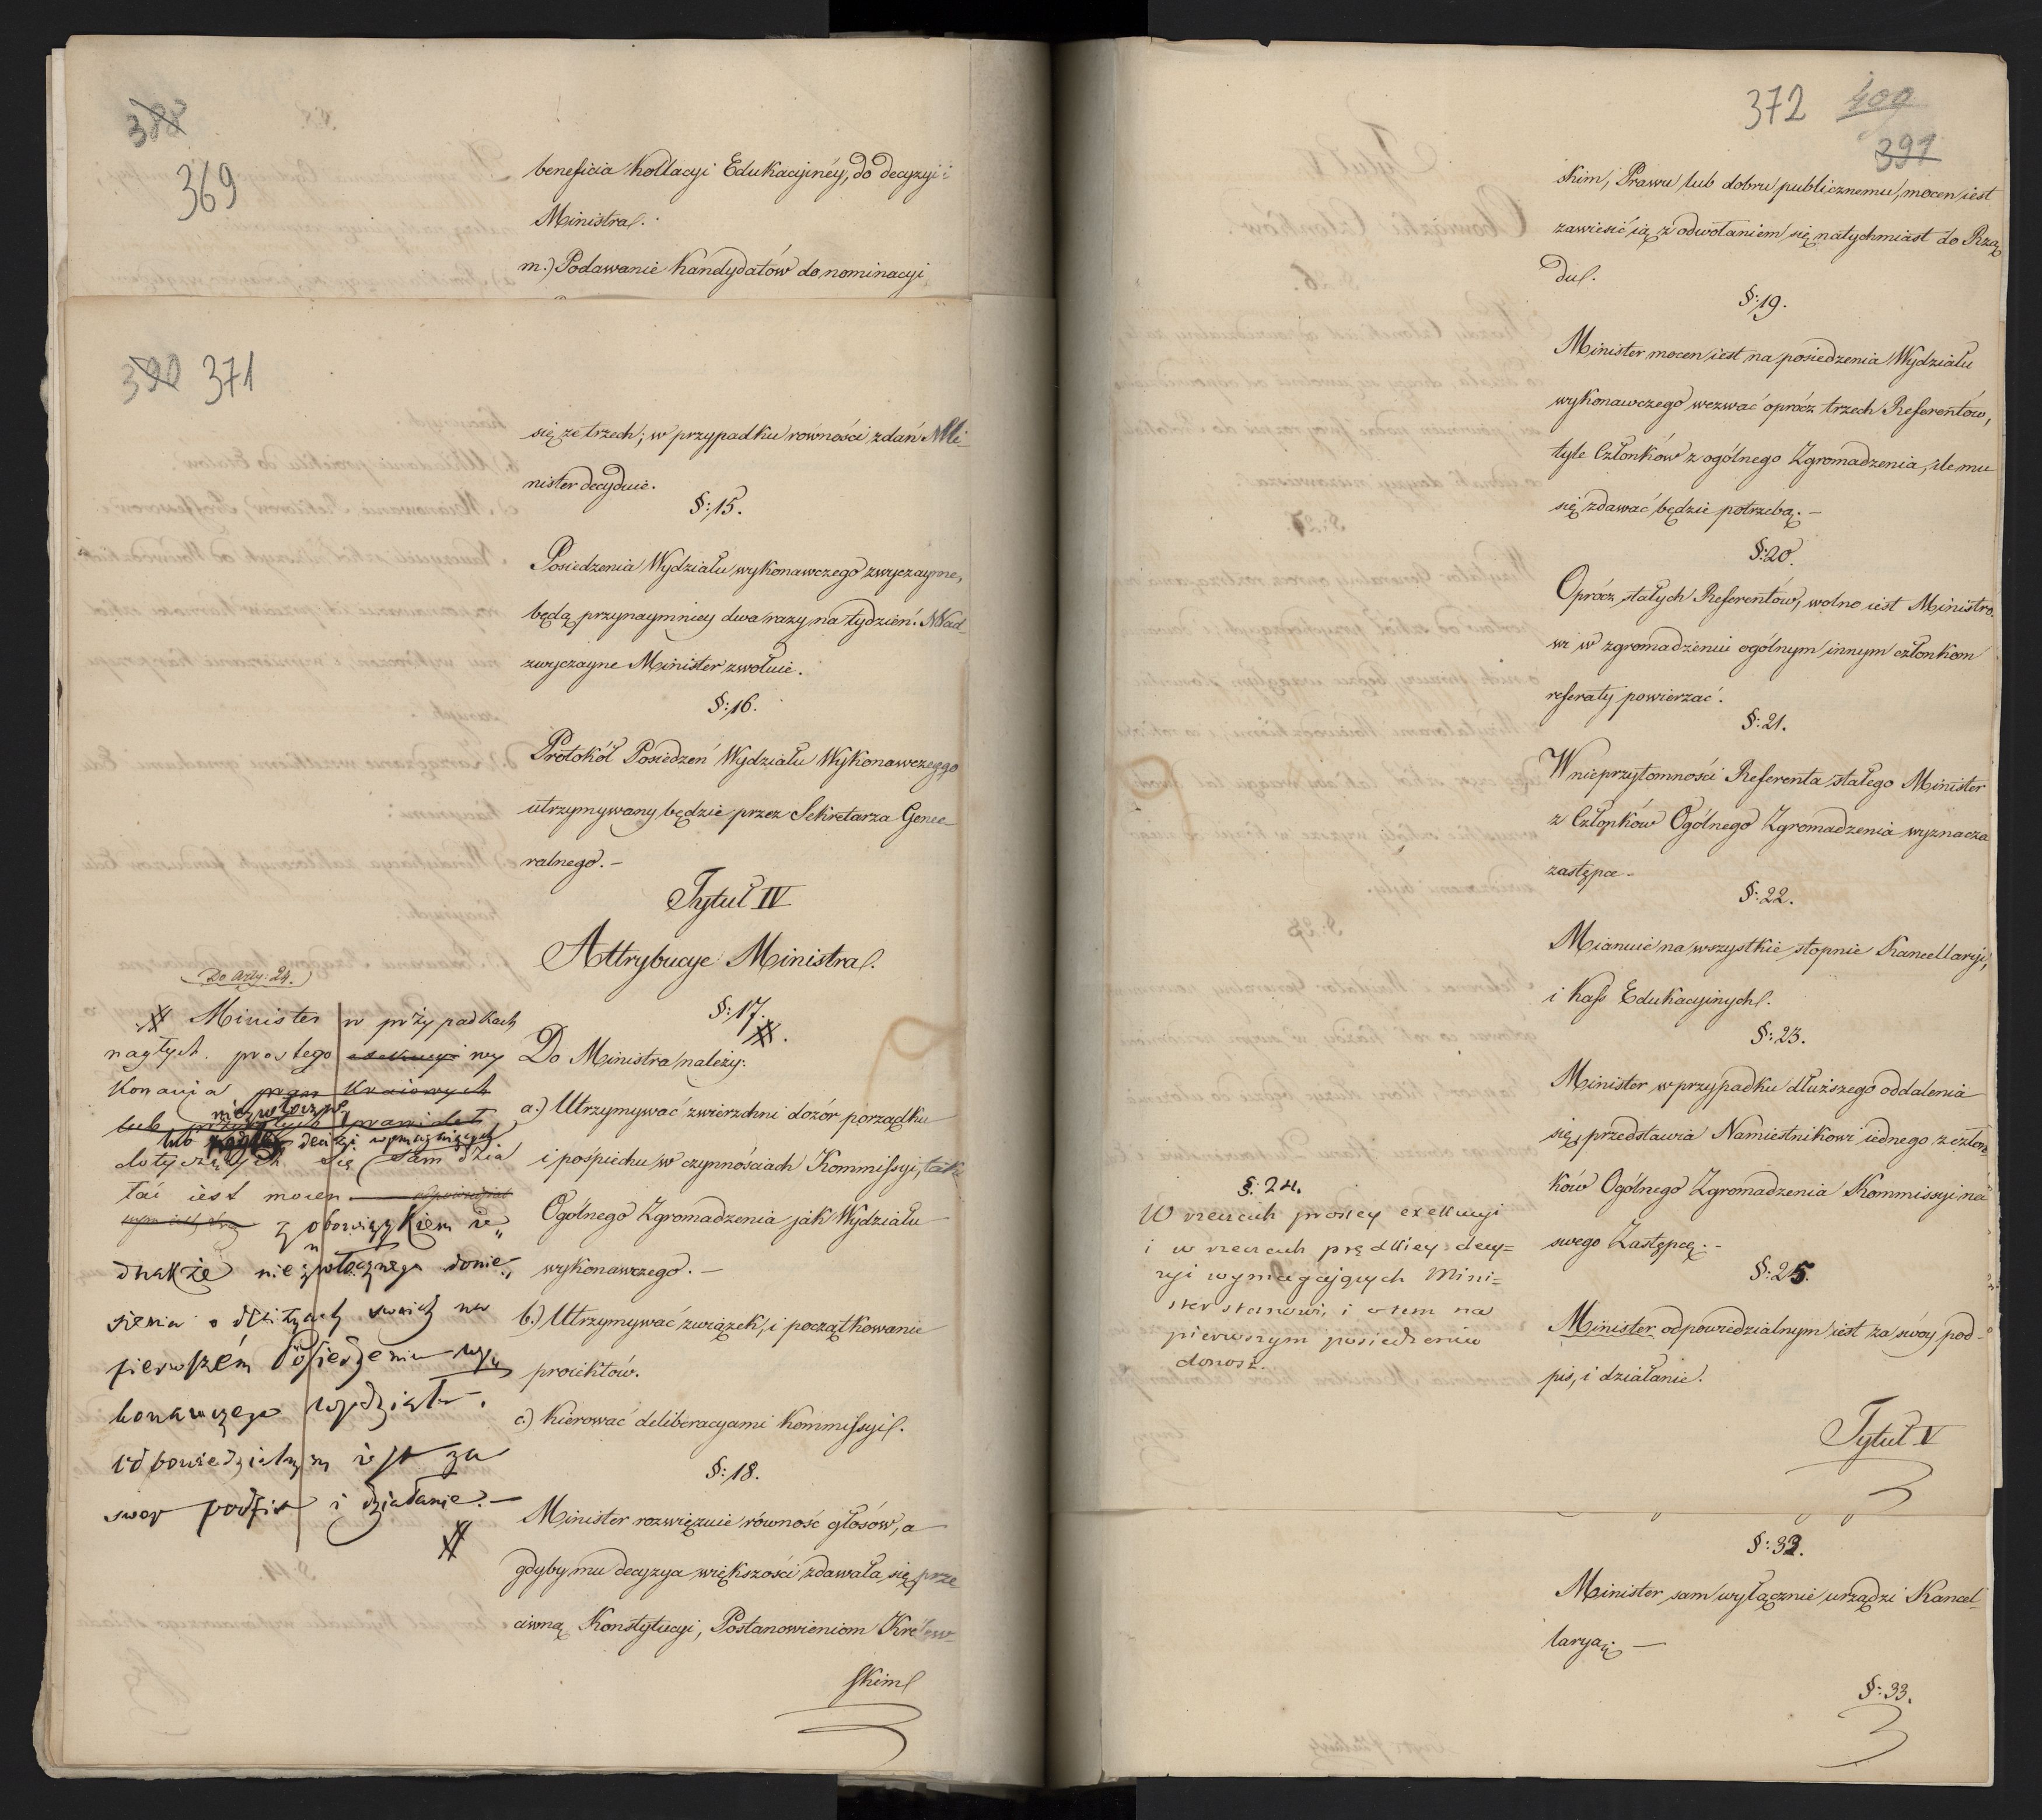 388
369
beneficia Kollacyi Edukacyinéy, do decyzyi
Ministra.
m.) Podawanie Kandydatów do nominacyi
390 371
się ze trzech; w przypadku równości zdań Mi-
nister decyduie.
§: 15.
Posiedzenia Wydziału wykonawczego zwyczayne,
będą przynaymniey dwa razy na tydzień. Nad-
zwyczayne Minister zwołuie.
§: 16.
Protokół Posiedzeń Wydziału Wykonawczego
utrzymywany będzie przez Sekretarza Gene-
ralnego. –
Tytuł IV
Attrybucye Ministra.
§: 17.
Do Ministra należy:
a.) Utrzymywać zwierzchni dozór porządku
i pospiechu w czynnościach Kommissyi, tak
Ogólnego Zgromadzenia jak Wydziału
wykonawczego. –
b.) Utrzymywać związek, i początkowanie
proiektów.
c.) Kierować deliberacyami Kommissyi.
§: 18.
Minister rozwięzuie równość głosów, a
gdyby mu decyzya większości zdawała się prze
ciwną Konstytucyi, Postanowieniom Królew-
skim
Do Arty: 24.
Minister w przypadkach
nagłych prostego exekucyi wy
konania praw Kraiowych
lub prawideł
niezwłoczney
lub decyzyi wymagaiących
dotyczących się sam dzia
łać iest mocen
z obowiązkiem ie„
dnakże niezwłocznego donie„
sienia o działaniach swoich na
pierwszém Posiedzeniu wy„
konawczego wydziału.
odpowiedzialnym iest za
swoy podpis i działanie. –
372 400
391
skim, Prawu lub dobru publicznemu, mocen iest
zawiesić ią z odwołaniem się natychmiast do Rzą
du.
§: 19.
Minister mocen iest na posiedzenia Wydziału
wykonawczego wezwać oprócz trzech Referentów,
tyle Członków z ogólnego Zgromadzenia, ile mu
się zdawać będzie potrzebą. –
§: 20.
Oprócz stałych Referentów, wolno iest Ministro
wi w zgromadzeniu ogólnym innym członkom
referaty powierzać.
§: 21.
W nieprzytomności Referenta stałego Minister
z Członków Ogólnego Zgromadzenia wyznacza
zastępcę.
§: 22.
Mianuie na wszystkie stopnie Kancellaryi,
i Kass Edukacyinych.
§: 23.
Minister w przypadku dłuższego oddalenia
się, przedstawia Namiestnikowi iednego z człon
ków Ogólnego Zgromadzenia Kommissyi na
swego Zastępcę. –
§: 24.
W rzeczach prostey exekucyi
i w rzeczach prędkiey decy=
zyi wymagaiących Mini=
ster stanowi, i o tem na
pierwszym posiedzeniu
donosi.
§: 25.
Minister odpowiedzialnym iest za swóy pod-
pis, i działanie.
Tytuł V
§: 32.
Minister sam wyłącznie urządzi Kancel-
laryą. –
§: 33.